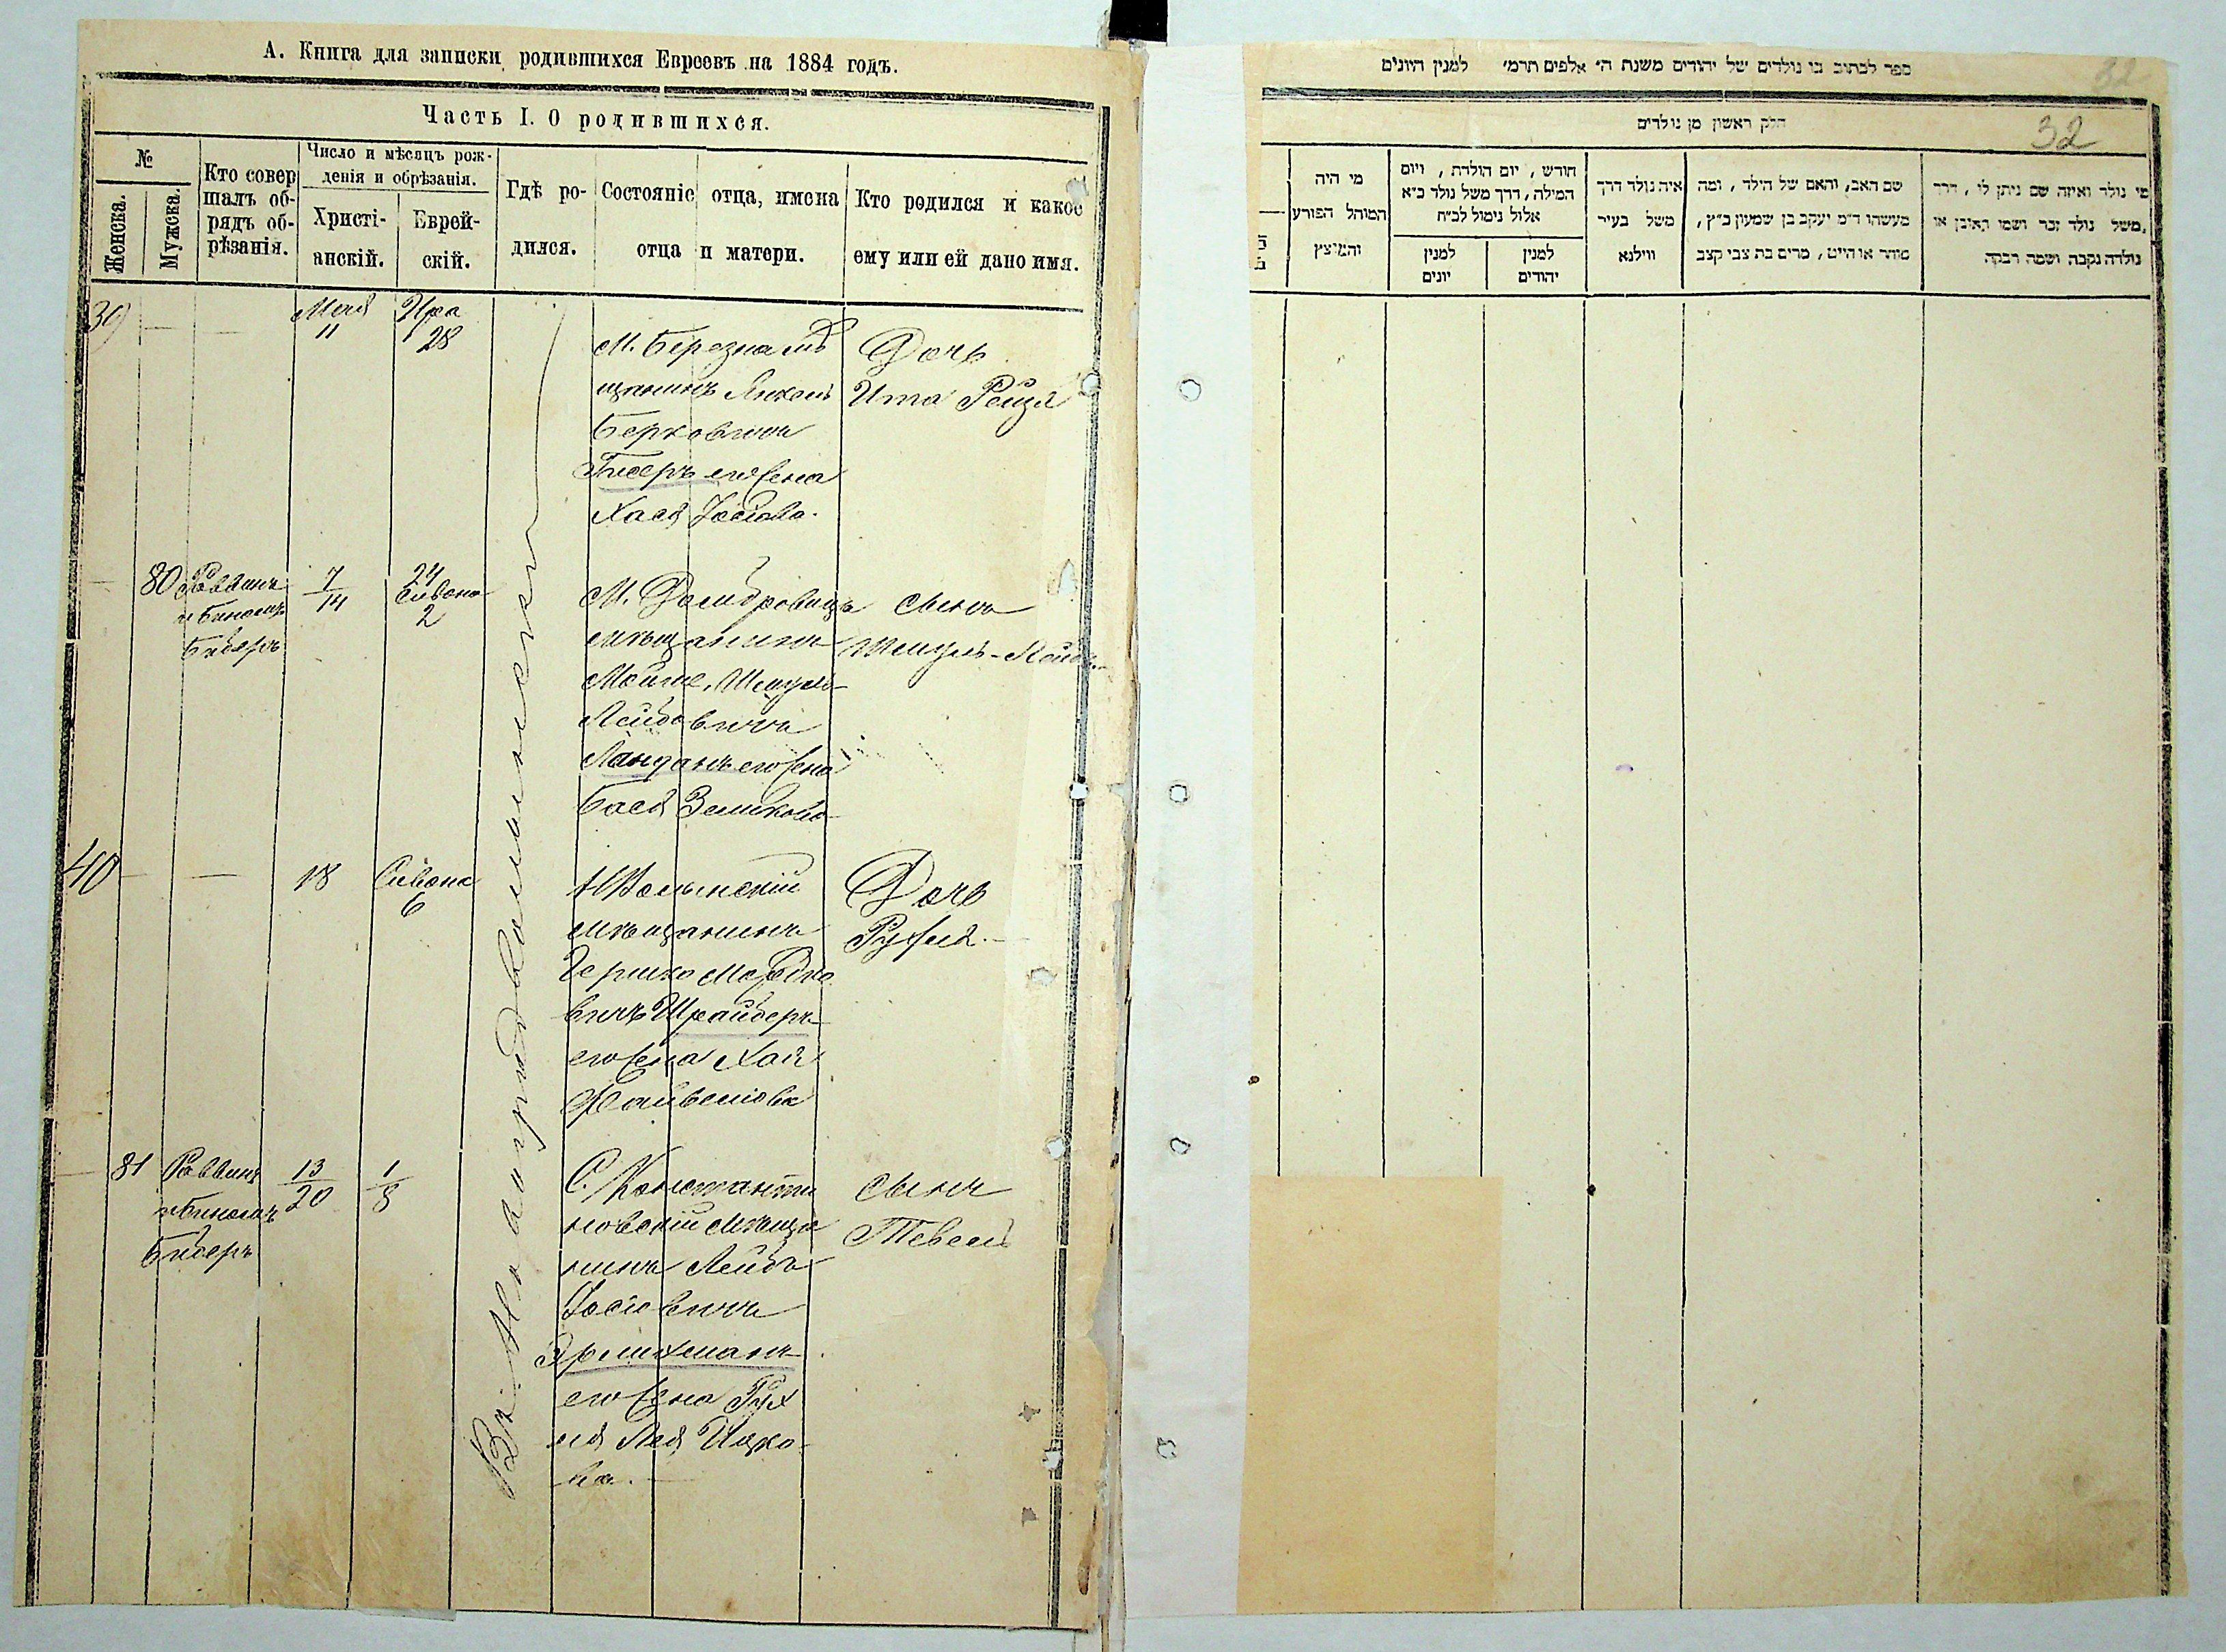 А. Книга для записки родившихся Евреевъ на 1884 годъ.
Часть I. О родившихся.
№
Женска.
Мужска.
Кто совер
шалъ об-
рядъ об-
рѣзанія.
Число и мѣсяцъ рож-
денія и обрѣзанія.
Христі-
анскій.
Еврей-
скій.
Гдѣ ро-
дился.
Состояніе отца, имена
отца и матери.
Кто родился и какое
ему или ей дано имя.
39 — — Мая
11
Ира
28
М. Березна мѣ
щанинъ Янкель
Берковичъ
его жена
Хася Іосіова.
Дочь
Ита Рейзя
— 80 Раввинъ
Бидеръ
7
14
24
Сивона
2
М. Домбровицъ
мѣщанинъ
Мойше, Шмуль-
Лейбовичъ
Ландакъ его жена
Бася Зеликова
сынъ
Шмуль-Лейба
40 — — 18 Сивона
6
мѣщанинъ
Гершко
вичъ Шрайберъ
его жена Хая
Файвелiова
Дочь
Рухля.—
— 81 Раввинъ
Бидеръ
13
20
1
8
С. Константи
новскій мѣща
нинъ Лейба
Іосіовичъ
Эрлихманъ
его жена Рух
ля Лея Ицко-
ва.—
сынъ
Тевель
ספר לכתוב בו נולדים של יהודים משנת ה' אלפים תרמ' למנין היונים
32
חלק ראשון מן נולדים
32
מי נולד ואיזה שם ניתן לו, דרך
משל נולד זכר ושמו ראובן או
נולדה נקבה ושמה רבקה
שם האב, והאם של הילד, ומה
מעשהו ד"מ יעקב בן שמעון כ"ץ,
סוחר או חייט, מרים בת צבי קצב
איה נולד דרך
משל בעיר
ווילנא
חודש, יום הולדת, ויום
המילה, דרך משל נולד כ"א
אלול נימול לכ"ח
למנין
יהודים
למנין
יונים
מי היה
המוהל הפורע
והמיצץ